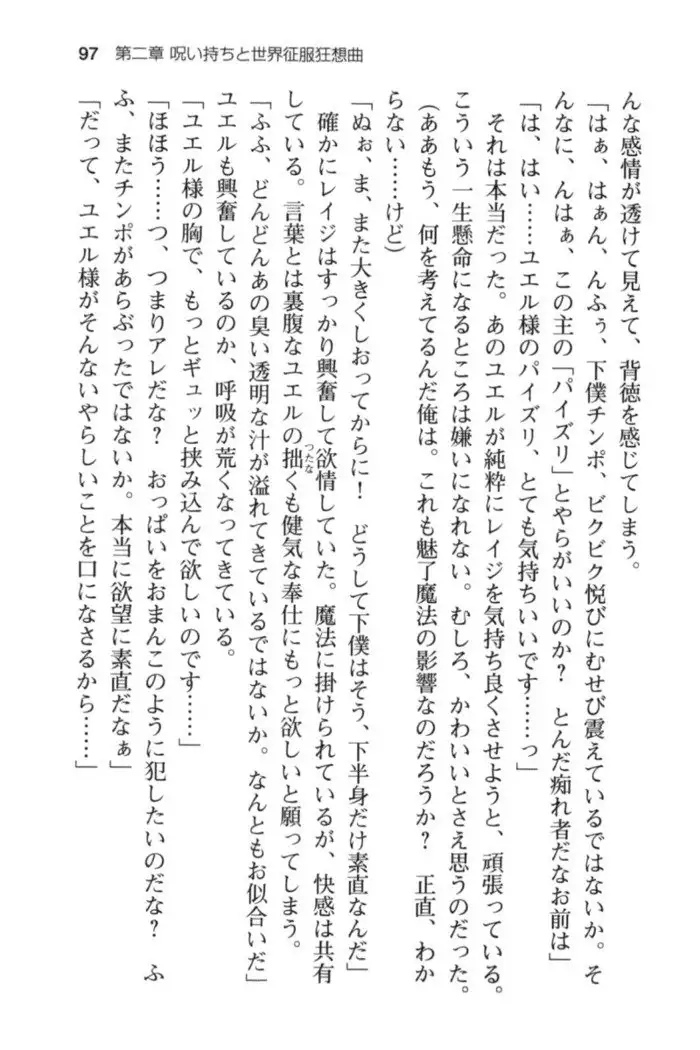 97 第二章 呪い持ちと世界征服狂想曲
んな感情が透けて見えて、背徳を感じてしまう。
「はぁ、はぁん、んふぅ、下僕チンポ、ビクビク悦びにむせび震えているではないか。そ
んなに、んはぁ、この主の「パイズリ」とやらがいいのか？　とんだ痴れ者だなお前は」
「は、はい……ユエル様のパイズリ、とても気持ちいいです……っ」
それは本当だった。あのユエルが純粋にレイジを気持ち良くさせようと、頑張っている。
こういう一生懸命になるところは嫌いになれない。むしろ、かわいいとさえ思うのだった。
（ああもう、何を考えてるんだ俺は。これも魅了魔法の影響なのだろうか？　正直、わか
らない……けど）
「ぬぉ、ま、また大きくしおってからに！　どうして下僕はそう、下半身だけ素直なんだ」
確かにレイジはすっかり興奮して欲情していた。魔法に掛けられているが、快感は共有
している。言葉とは裏腹なユエルの拙くも健気な奉仕にもっと欲しいと願ってしまう。
つたな
「ふふ、どんどんあの臭い透明な汁が溢れてきているではないか。なんともお似合いだ」
ユエルも興奮しているのか、呼吸が荒くなってきている。
「ユエル様の胸で、もっとギュッと挟み込んで欲しいのです……」
「ほほう……つ、つまりアレだな？　おっぱいをおまんこのように犯したいのだな？　ふ
ふ、またチンポがあらぶったではないか。本当に欲望に素直だなぁ」
「だって、ユエル様がそんないやらしいことを口になさるから……」